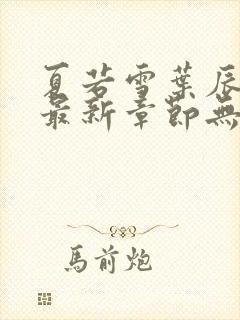 夏若雪葉辰
最新章節無
馬前炮